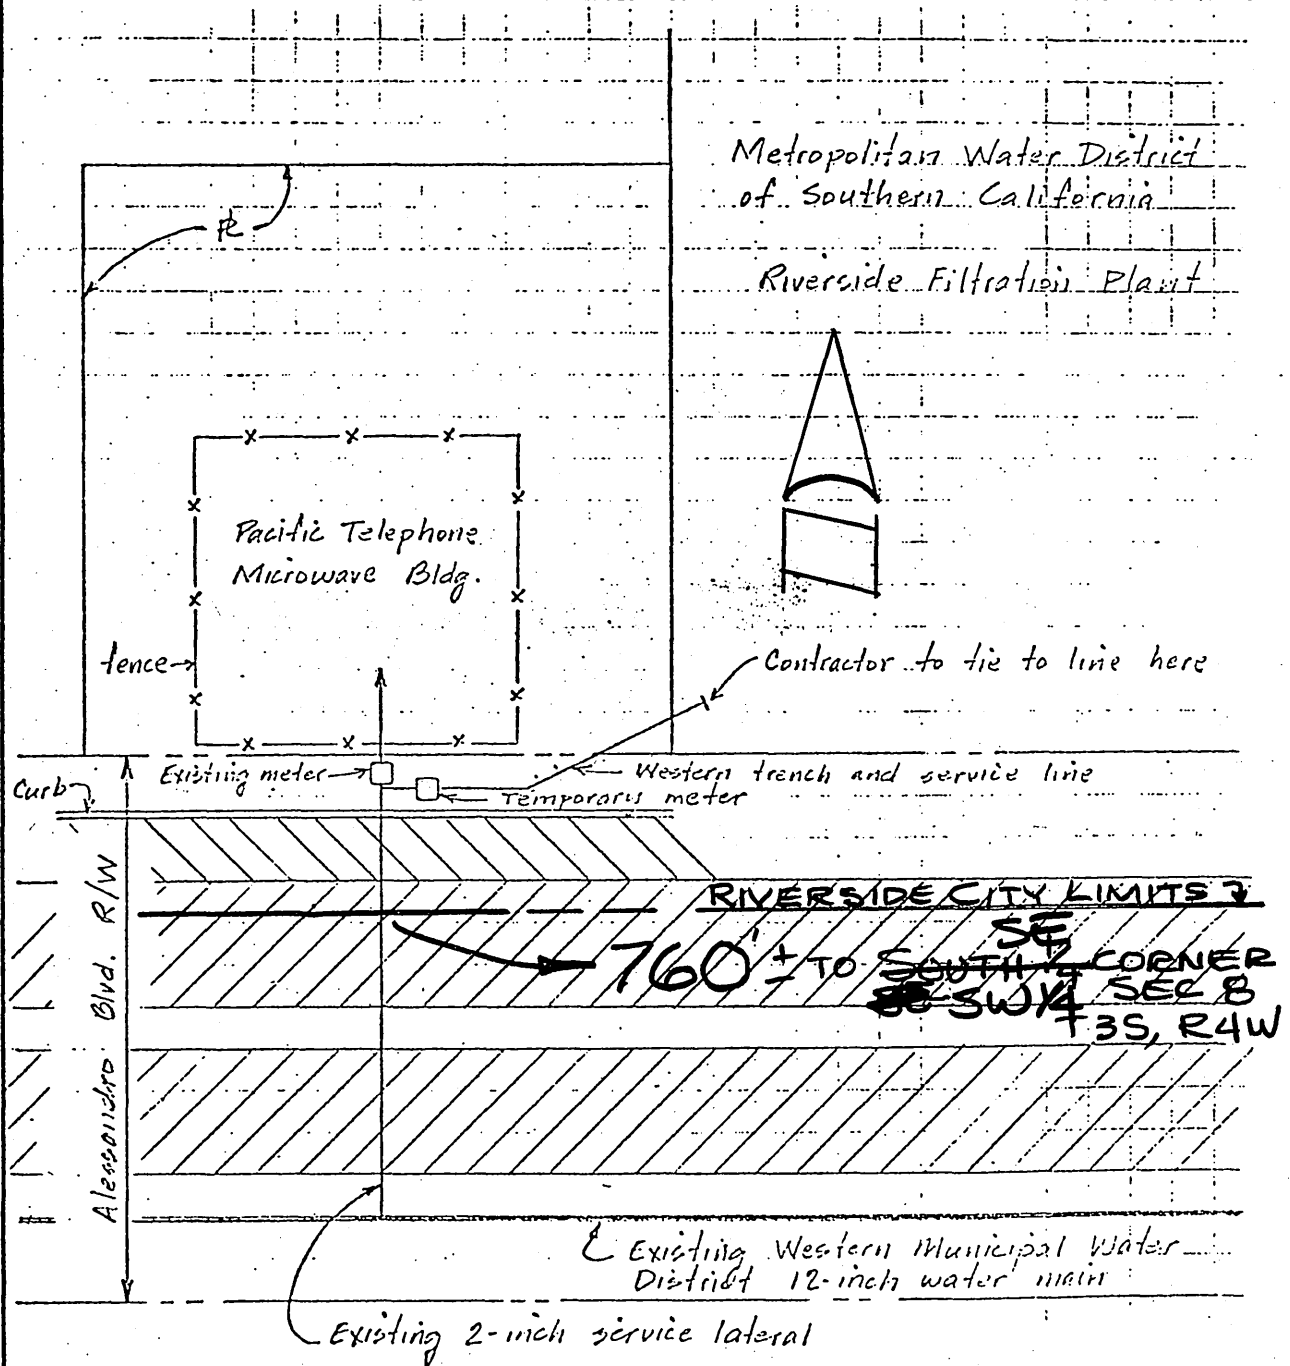 Metropolitan Water District
of Southern California
PL
Riverside Filtration Plant
Pacific Telephone
Microwave Bldg.
fence
Contractor to tie to line here
Existing meter
Western trench and service line
Curb
Temporary meter
Alessandro Blvd. R/W
RIVERSIDE CITY LIMITS
SE
760' ± TO SOUTH 1/4 CORNER
SW 1/4 SEC 8
T3S, R4W
Existing Western Municipal Water
District 12-inch water main
Existing 2-inch service lateral